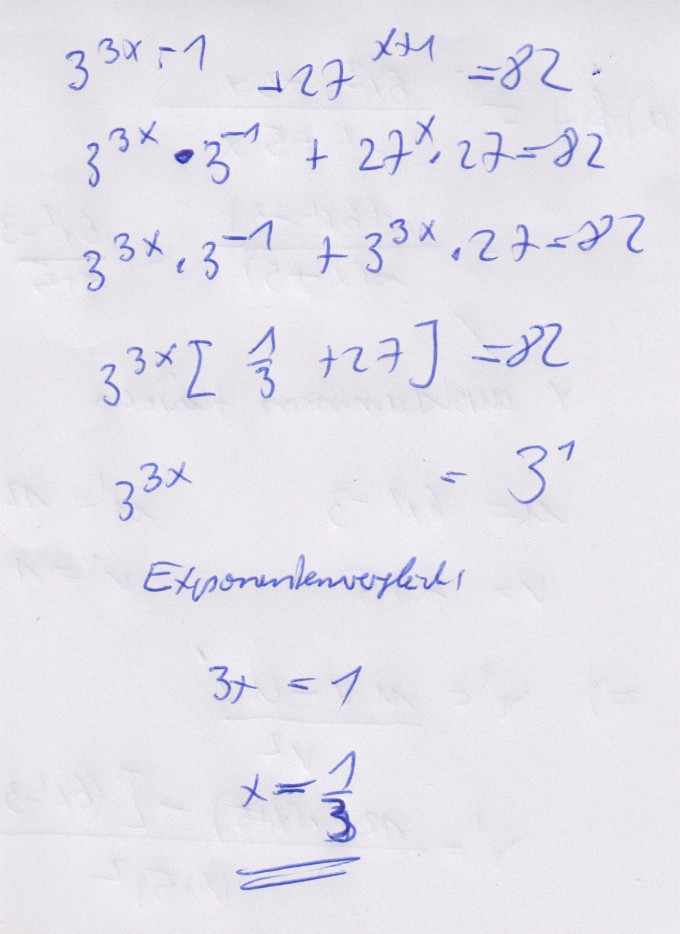 3^(3x-1) + 27^(x+1) = 82
3^(3x) · 3^(-1) + 27^x · 27 = 82
3^(3x) · 3^(-1) + 3^(3x) · 27 = 82
3^(3x) [ 1/3 + 27 ] = 82
3^(3x) = 3^1
Exponentenvergleich:
3x = 1
x = 1/3